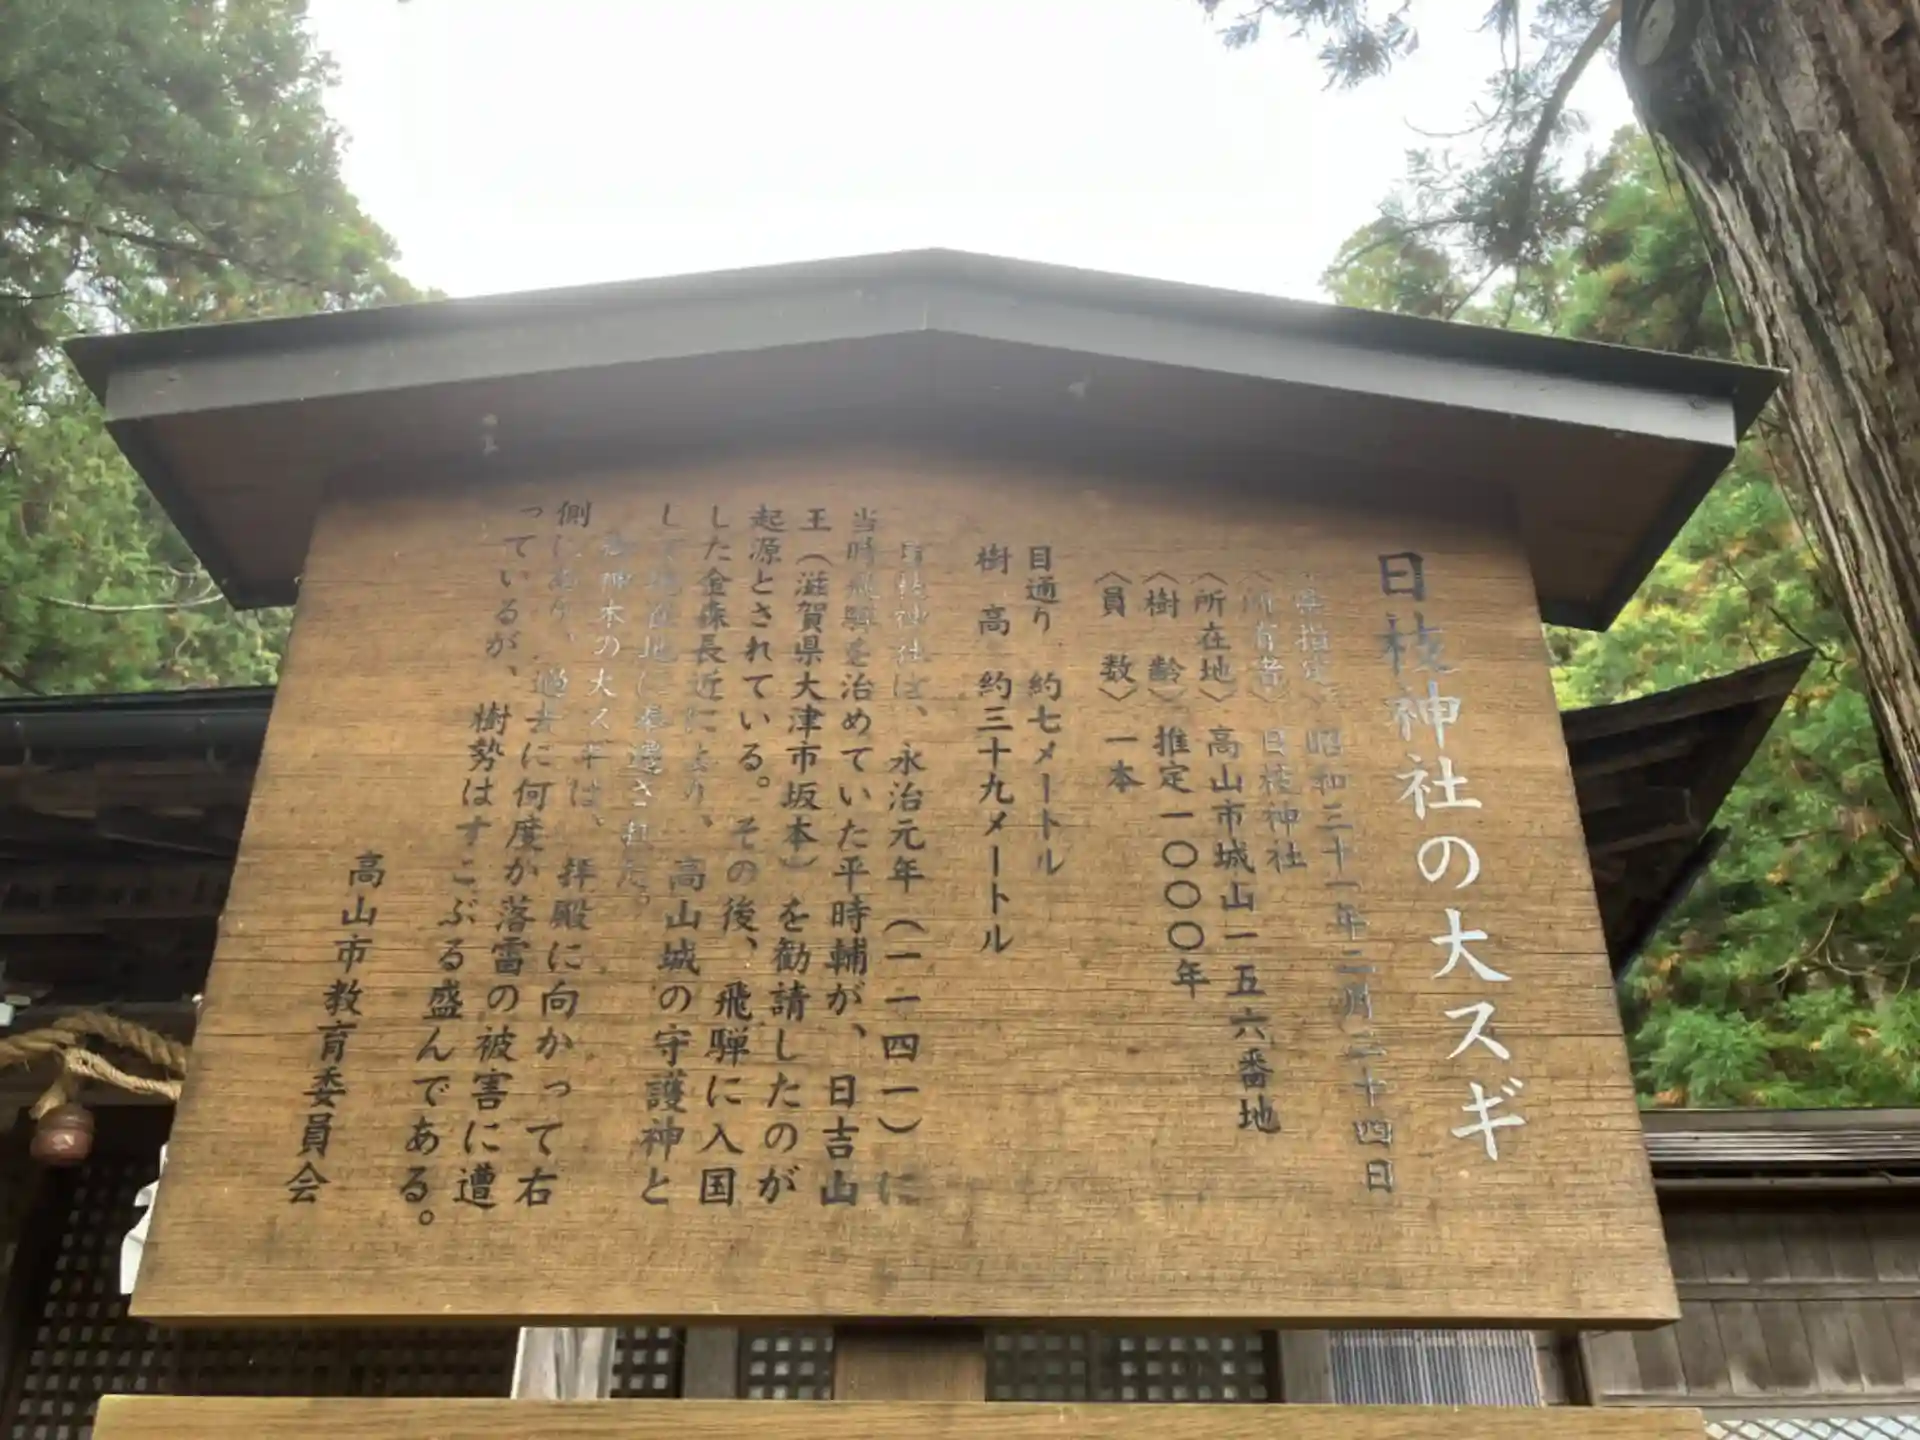 日枝神社の大スギ
〈県指定〉昭和三十一年二月二十四日
〈所有者〉日枝神社
〈所在地〉高山市城山一五六番地
〈樹　齢〉推定一〇〇〇年
〈員　数〉一本
目通り　約七メートル
樹　高　約三十九メートル
日枝神社は、永治元年（一一四一）に
当時飛騨を治めていた平時輔が、日吉山
王（滋賀県大津市坂本）を勧請したのが
起源とされている。その後、飛騨に入国
した金森長近により、高山城の守護神と
して現在地に奉遷された。
御神木の大スギは、拝殿に向かって右
側にあり、過去に何度か落雷の被害に遭
っているが、樹勢はすこぶる盛んである。
高山市教育委員会